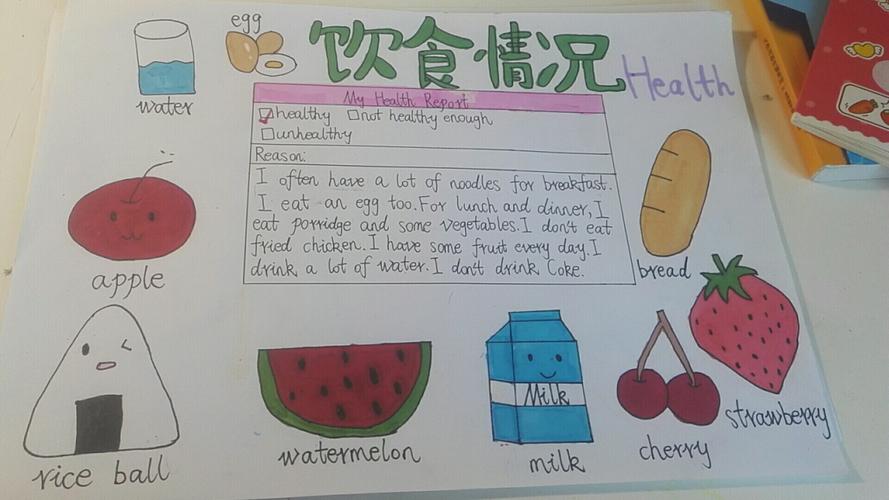 egg
饮食情况
Health
water
My Health Report
healthy not healthy enough
unhealthy
Reason:
I often have a lot of noodles for breakfast.
I eat an egg too.For lunch and dinner,I
eat porridge and some vegetables.I don't eat
fried chicken.I have some fruit every day.I
drink a lot of water.I don't drink Coke.
apple
bread
rice ball
watermelon
Milk
milk
cherry
strawberry